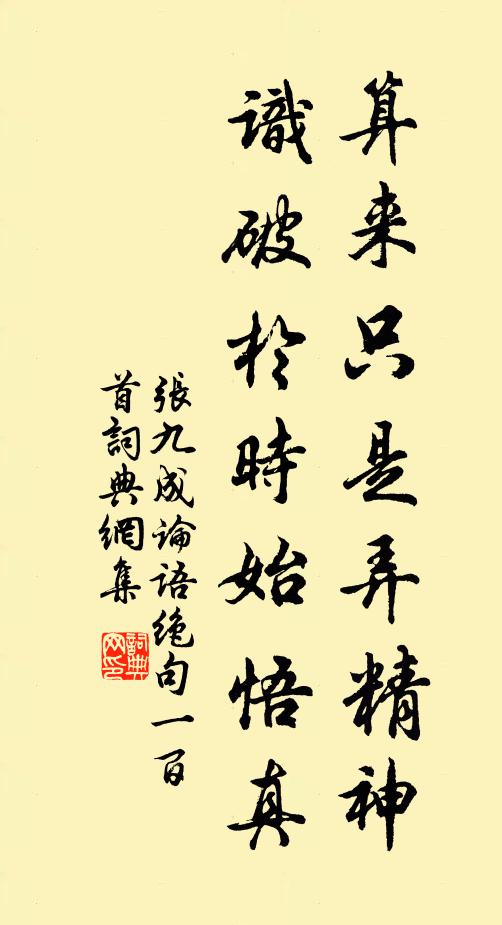 算来只是弄精神
識破於時始悟真
張九成論語绝句一百
首詞典網集
詞典网印